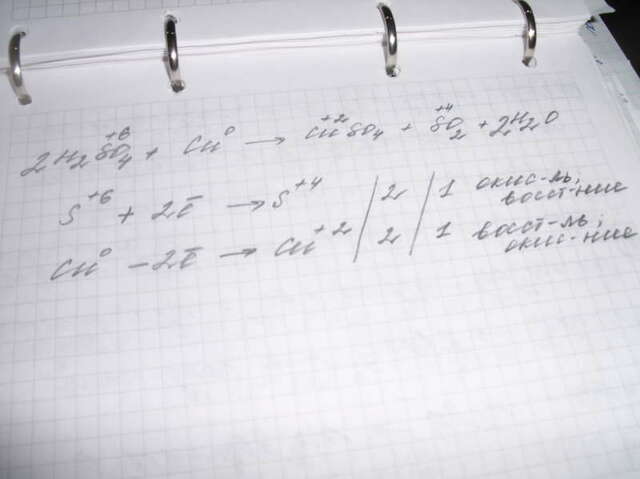 2H₂S⁺⁶O₄ + Cu⁰ → Cu⁺²SO₄ + S⁺⁴O₂ + 2H₂O
S⁺⁶ + 2ē → S⁺⁴ | 2 | 1 окис-ль, восст-ние
Cu⁰ – 2ē → Cu⁺² | 2 | 1 восст-ль, окис-ние